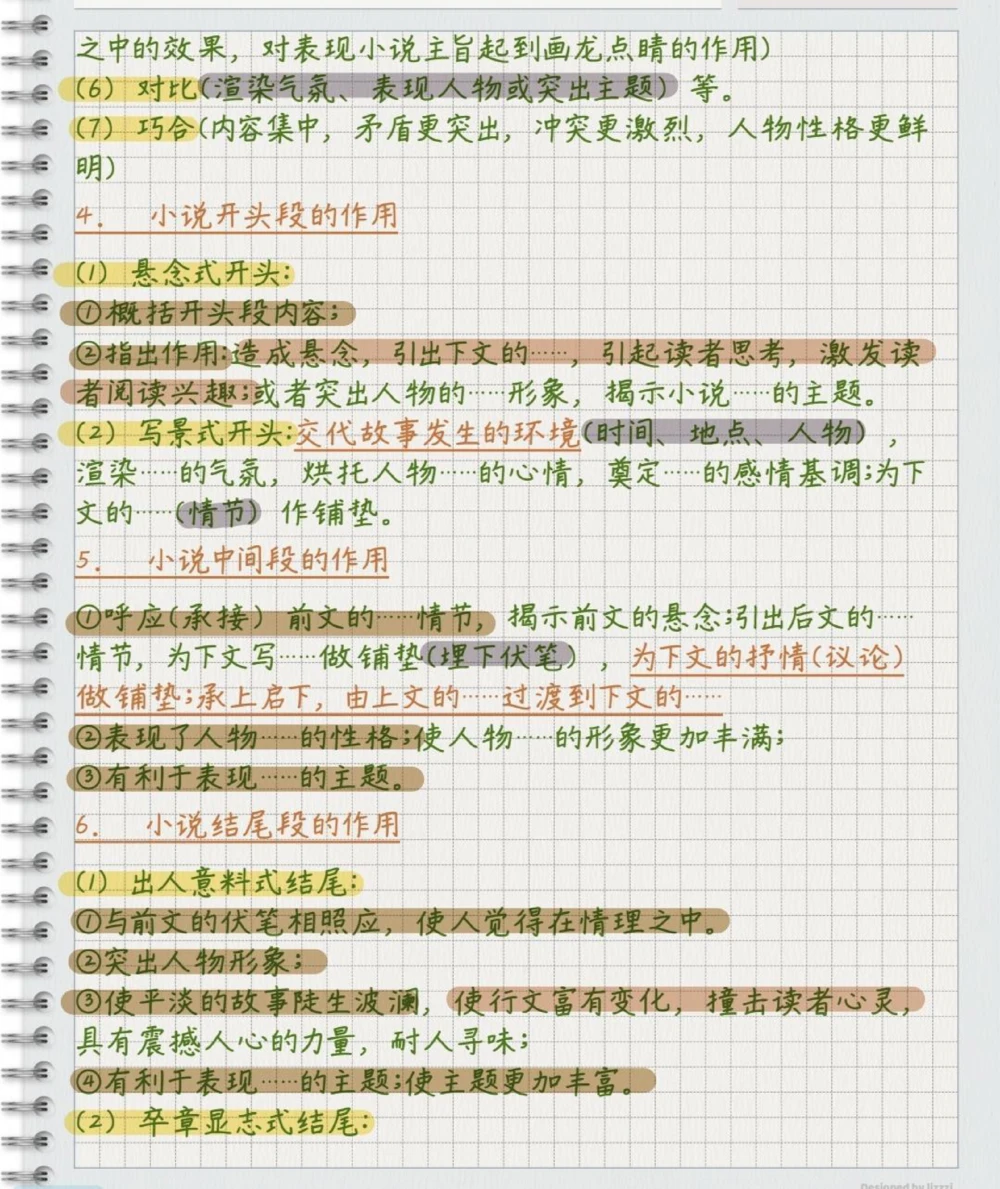 之中的效果，对表现小说主旨起到画龙点睛的作用）
（6）对比（渲染气氛、表现人物或突出主题）等。
（7）巧合（内容集中，矛盾更突出，冲突更激烈，人物性格更鲜
明）
4． 小说开头段的作用
（1）悬念式开头：
①概括开头段内容；
②指出作用：造成悬念，引出下文的……，引起读者思考，激发读
者阅读兴趣；或者突出人物的……形象，揭示小说……的主题。
（2）写景式开头：交代故事发生的环境（时间、地点、人物），
渲染……的气氛，烘托人物……的心情，奠定……的感情基调；为下
文的……（情节）作铺垫。
5． 小说中间段的作用
①呼应（承接）前文的……情节，揭示前文的悬念；引出后文的……
情节，为下文写……做铺垫（埋下伏笔），为下文的抒情（议论）
做铺垫；承上启下，由上文的……过渡到下文的……
②表现了人物……的性格；使人物……的形象更加丰满；
③有利于表现……的主题。
6． 小说结尾段的作用
（1）出人意料式结尾：
①与前文的伏笔相照应，使人觉得在情理之中。
②突出人物形象；
③使平淡的故事陡生波澜，使行文富有变化，撞击读者心灵，
具有震撼人心的力量，耐人寻味；
④有利于表现……的主题；使主题更加丰富。
（2）卒章显志式结尾：
Designed by lizzzi